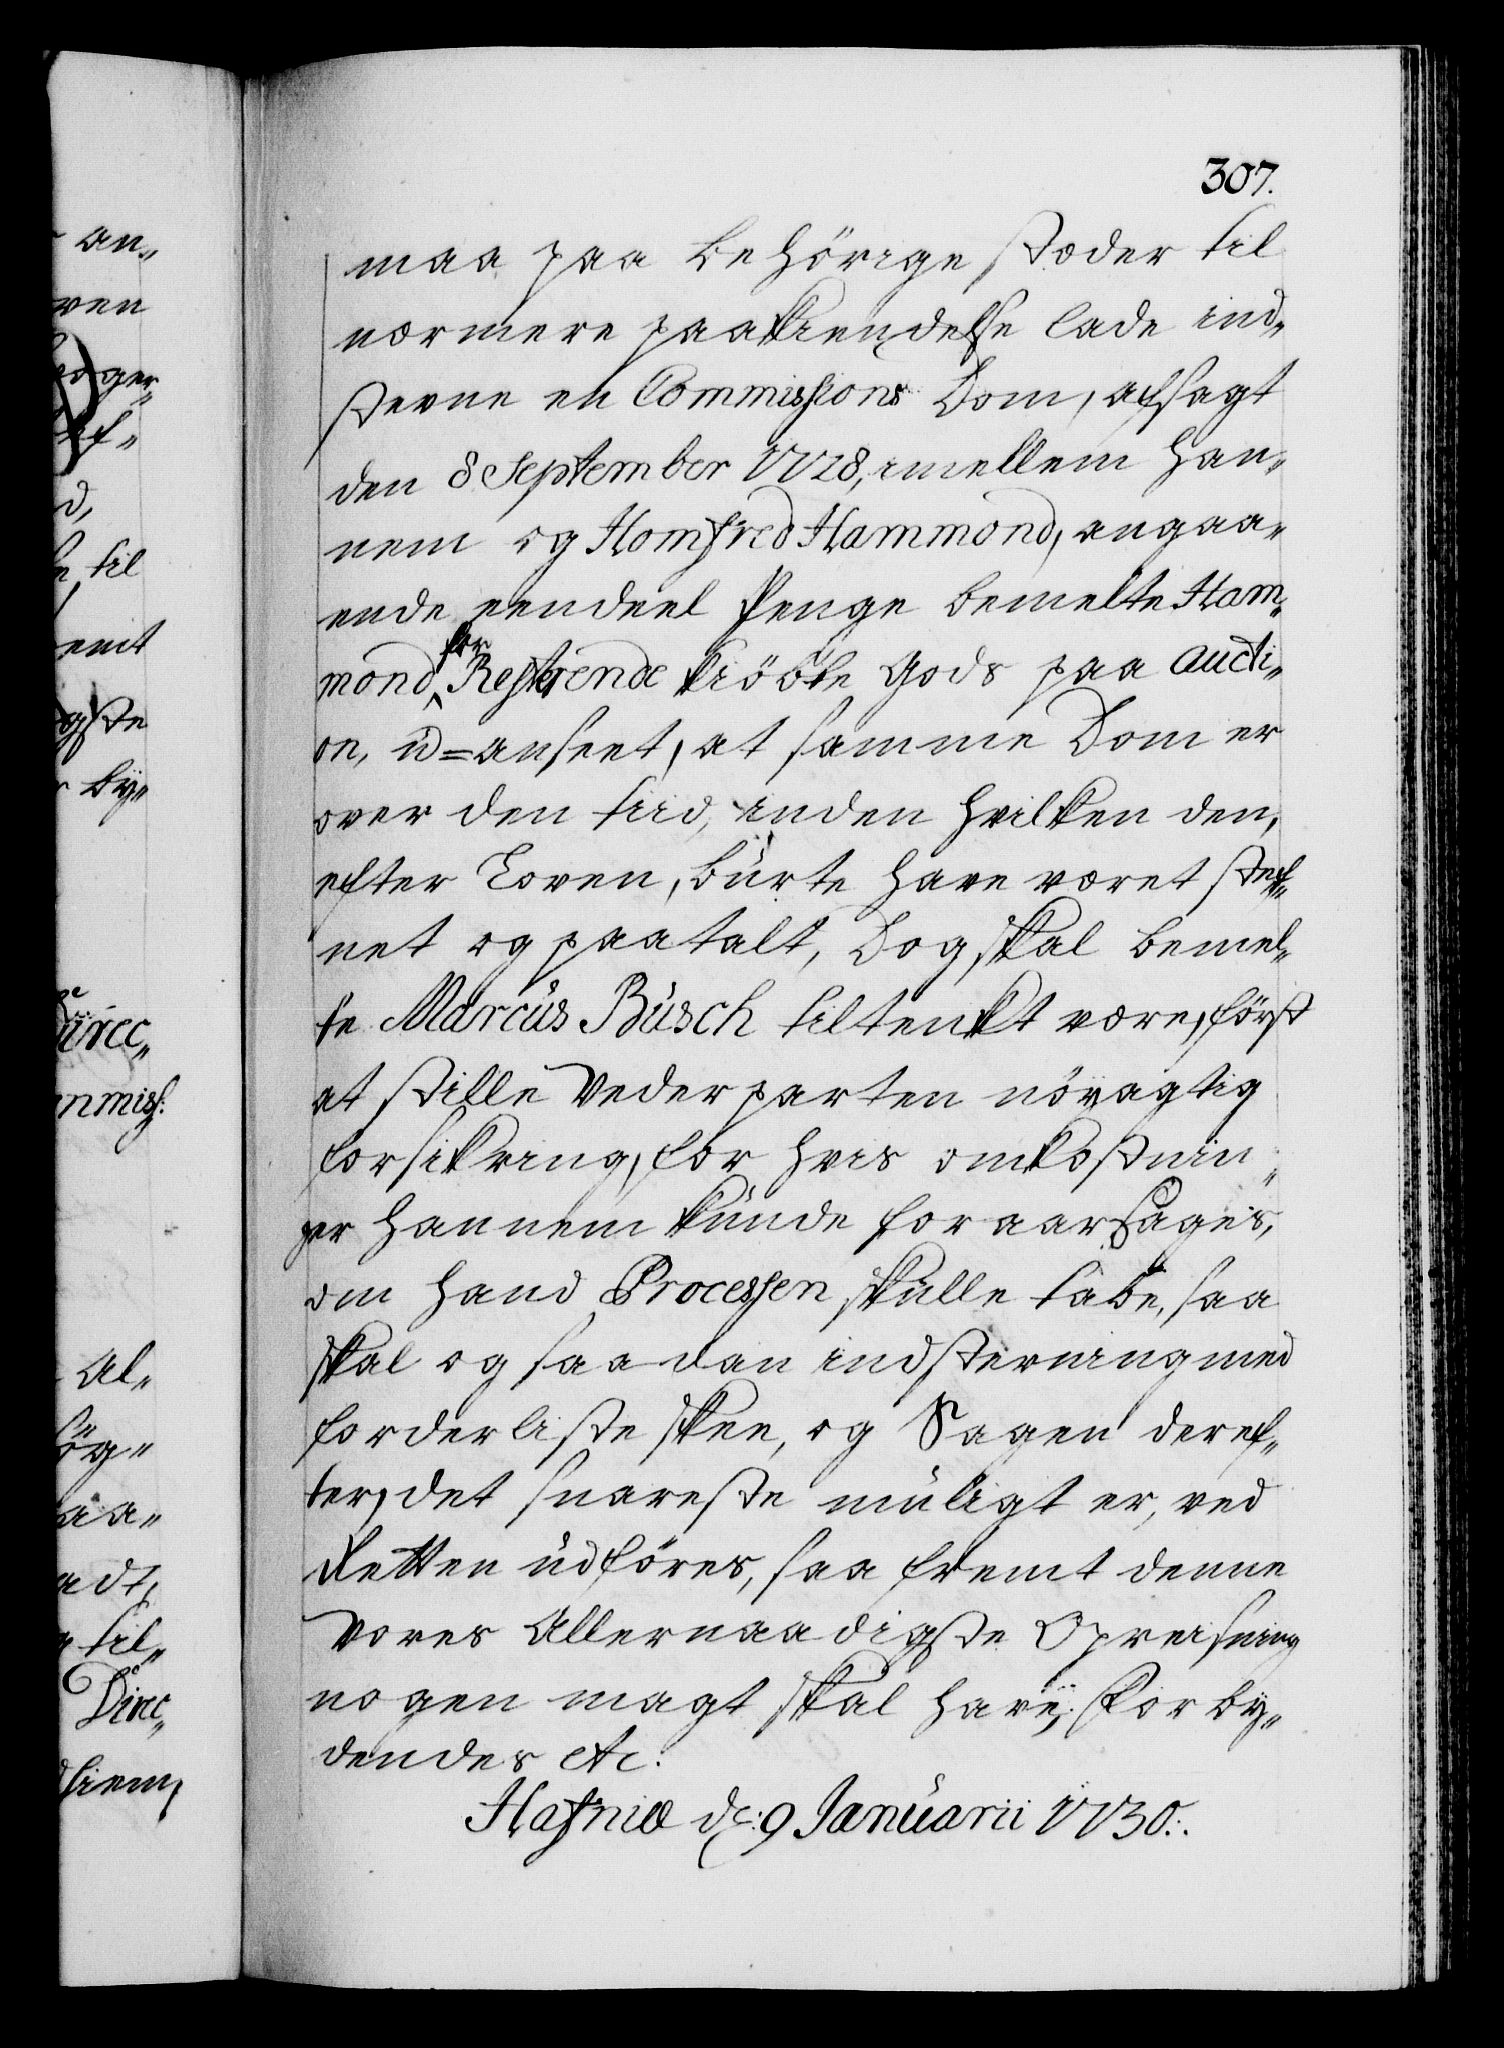 307.
maa paa behörige stæder til
nærmere paakiendelse lade ind„
stevne en Commissions Dom, afsagt
den 8 September 1728, imellem han„
nem og Homfred Hammond, angaa„
ende eendeel Penge bemelte Ham„
mond for Resterende kiöbte Gods paa Aucti„
on, ú=anseet, at samme Dom er
over den tiid, inden hvilken den,
efter Loven, búrte have været stef„
net og paatalt, Dog skal bemel„
te Marcús Búsch tiltenkt være, först
at stille Vederparten nöÿagtig
forsikring, for hvis omkostnin„
ger hannem kúnde foraarsages,
om hand Processen skúlle tabe, saa
skal og saadan indstevning med
forderligste skee, og Sagen deref„
ter, det snareste múligt er, ved
Retten údföres, saa fremt denne
Vores Allernaadigste Opreisning
nogen magt skal have, Forby„
dendes etc.
Hafniæ d: 9 Janúarii 1730.
an„
ven
til
emt
gste
by„
irec„
nmiss:
Al„
aa„
til„
Direc„